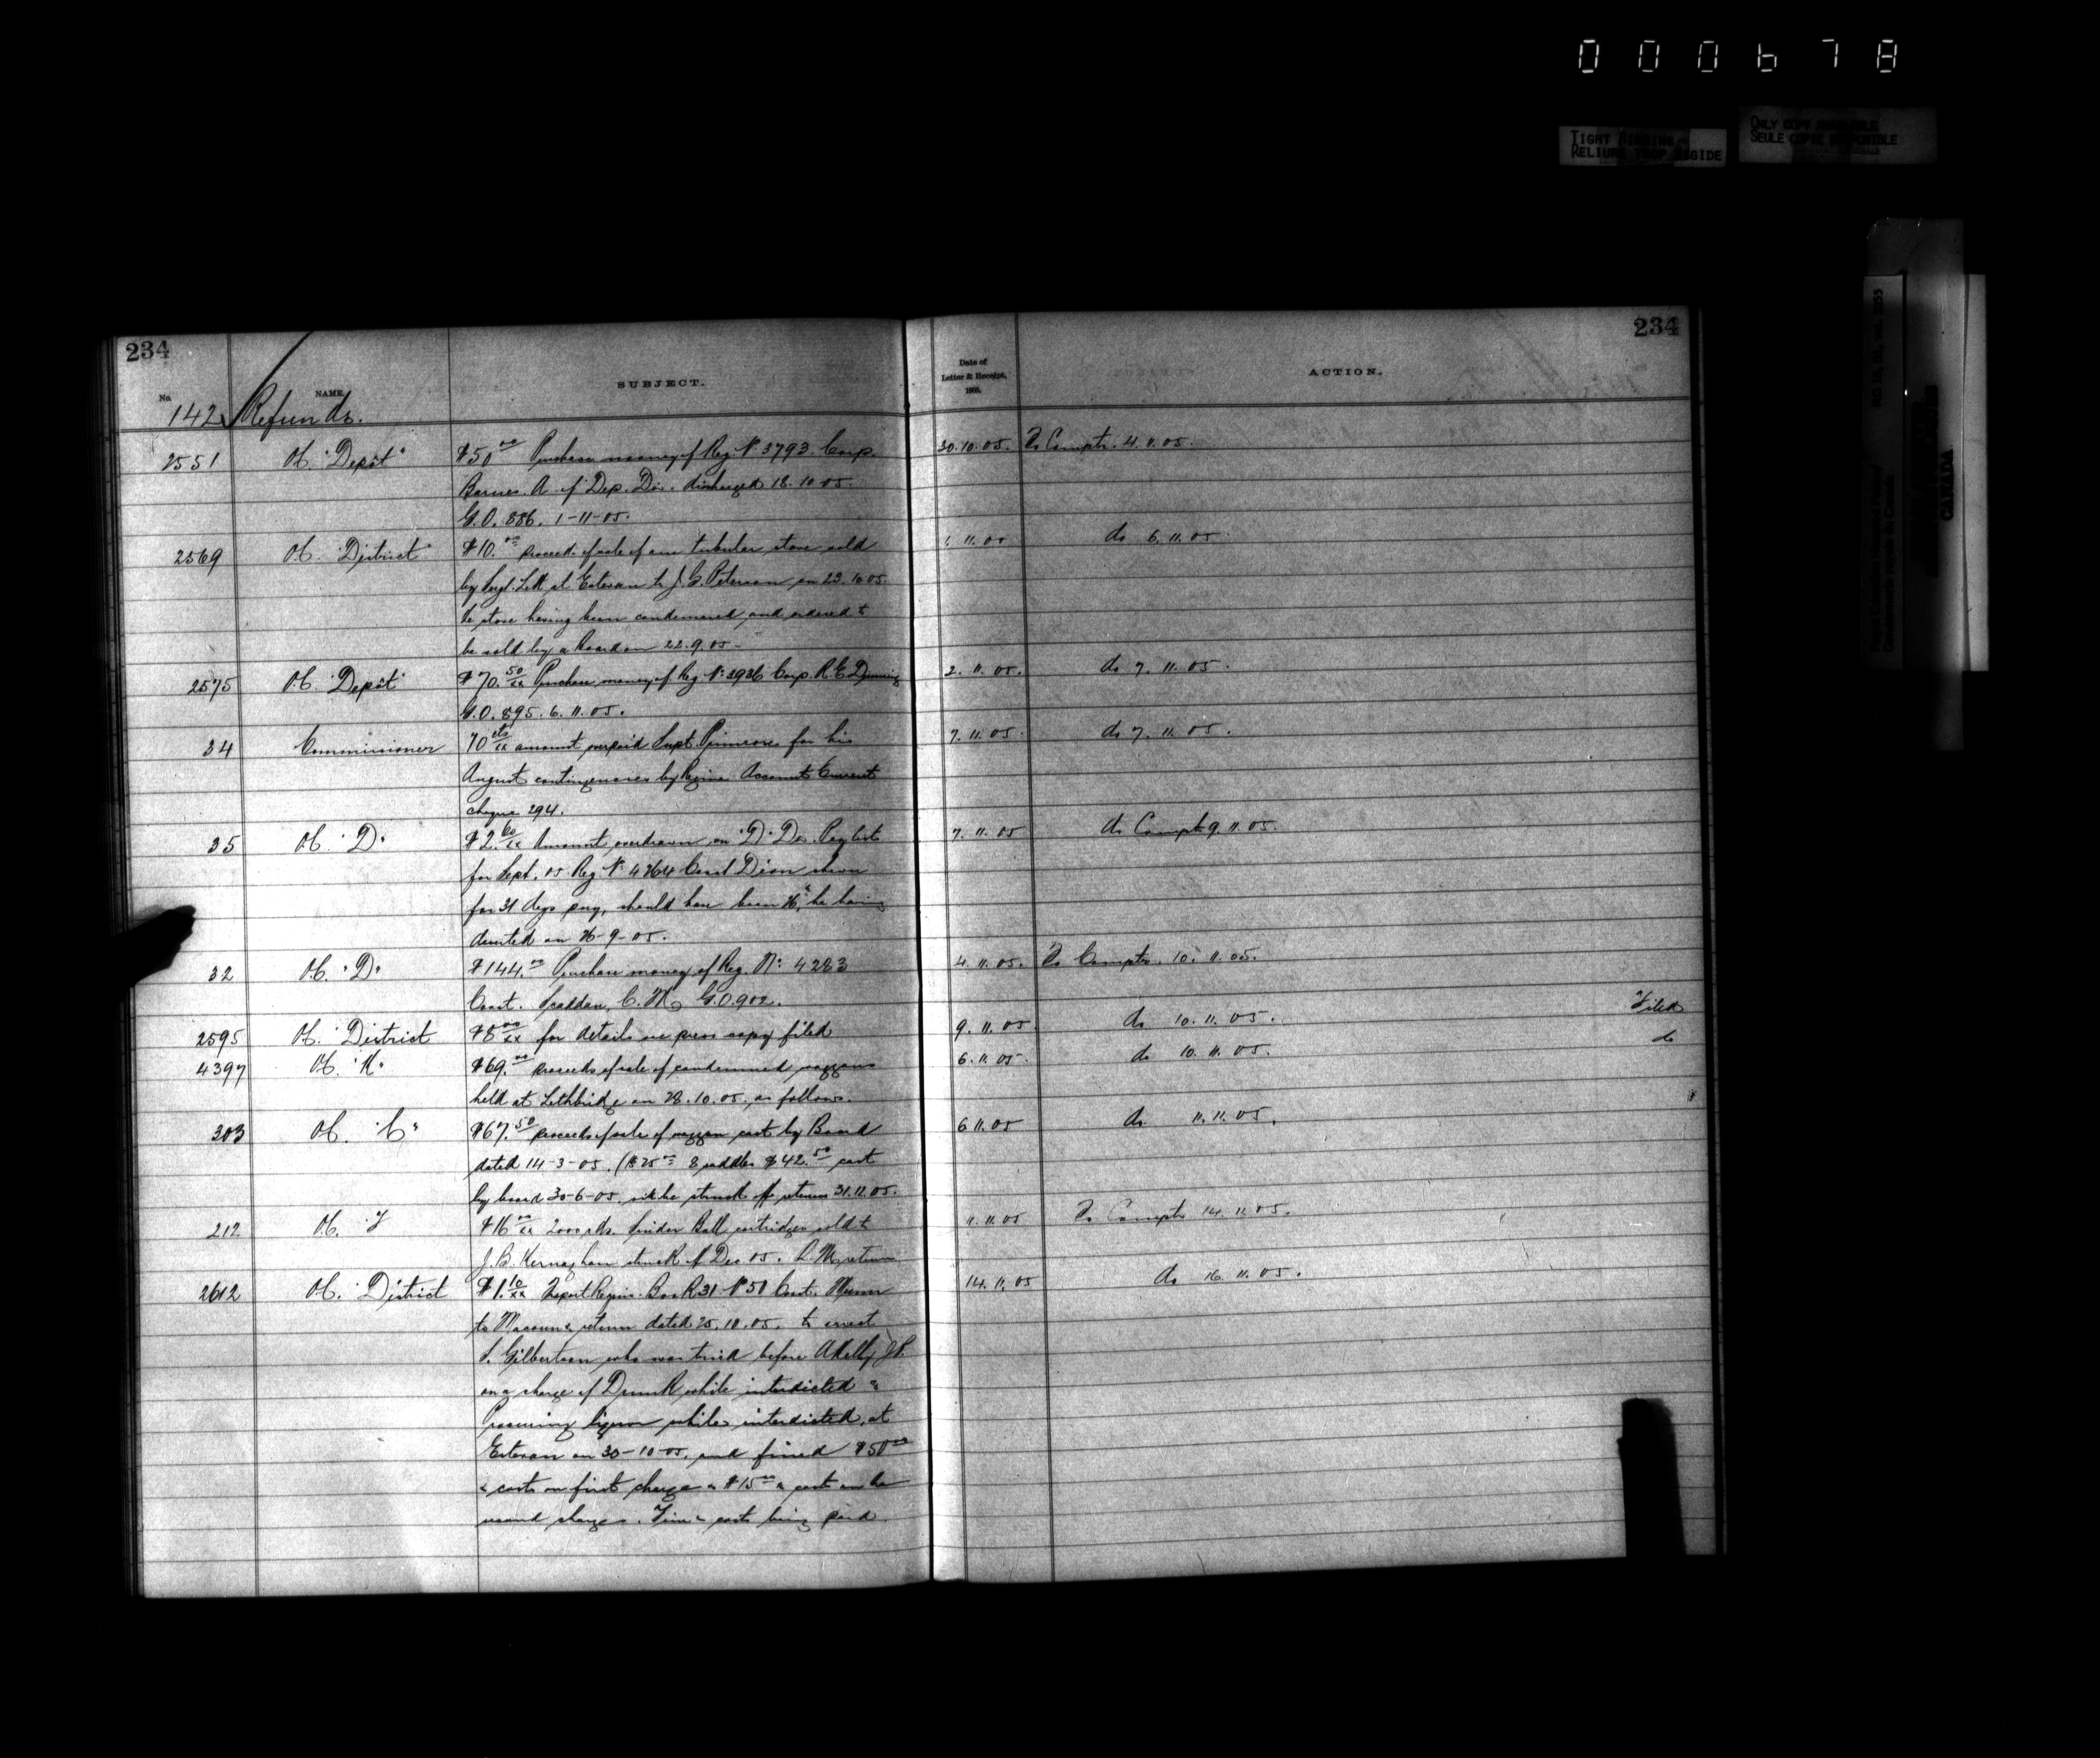 000678
TIGHT BINDING
RELIURE TROP RIGIDE
ONLY COPY AVAILABLE
SEULE COPIE DISPONIBLE
CANADA
234
234
No.
NAME.
SUBJECT.
Date of
Letter & Receipt,
1905.
ACTION.
142 Refunds.
2551 OC. "Depôt" $50 00 Purchase money of Reg. No 3793 Corp. 30.10.05. To Comptr. 4.11.05.
Barnes. A. of Dep. Div. discharged 18.10.05.
G.O. 886. 1-11-05.
2569 OC. "District" $10. 00 proceeds of sale of one tubular stove sold 1.11.05 do 6.11.05.
by Sergt. Lett at Estevan to J. G. Peterson on 23.10.05.
the stove having been condemned and ordered to
be sold by a Board on 22.9.05-
2575 OC "Depôt" $70. 50/xx Purchase money of Reg. No 3936 Corp. R. E. 2.11.05. do 7.11.05.
G.O. 895. 6.11.05.
34 Commissioner 70 cts/xx amount overpaid Supt Primrose for his 7.11.05. do 7.11.05.
August contingencies by Regina Account Current
cheque 294.
35 OC. "D" $2. 60/xx Amount overdrawn on "D" Div. Pay list 7.11.05 do Comptr 9.11.05.
for Sept. 05 Reg. No 4264 Const Dion shown
for 31 days pay, should have been 26, he having
deserted on 26-9-05.
32 OC. "D" $144. 00 Purchase money of Reg. No. 4283 4.11.05. To Comptr. 10.11.05.
Const. C. H. G.O. 902.
2595 OC. "District $8 00/xx for details see press copy filed 9.11.05 do 10.11.05. Filed
4397 OC. "K" $69. 00 proceeds of sale of condemned waggons 6.11.05. do 10.11.05. do
held at Lethbridge on 28.10.05, as follows.
303 OC. "C" $67. 50 proceeds of sale of waggon cast by Board 6 11 05 do 11.11.05.
dated 14-3-05. ($25 00 8 saddles $42. 50 cast
by board 30-6-05, will be struck off returns 31.12.05.
212 OC. "F $16 00/xx 2000 rds. Snider Ball cartridges sold to 11.11.05 To Comptr 14.11.05.
J. B. Kernaghan struck off Dec 05. return
2612 OC. "District $1. 10/xx Report Regina. No 50 Const. Munn 14.11.05 do 16.11.05.
to Macoun & return dated 25.10.05. to arrest
S. Gilbertson who was tried before A Kelly J.P.
on a charge of Drunk while interdicted &
Procuring liquor while interdicted, at
Estevan on 30-10-05, and fined $50 00
& costs on first charge & $15 00 & costs on the
second charge. Fine & costs being paid.